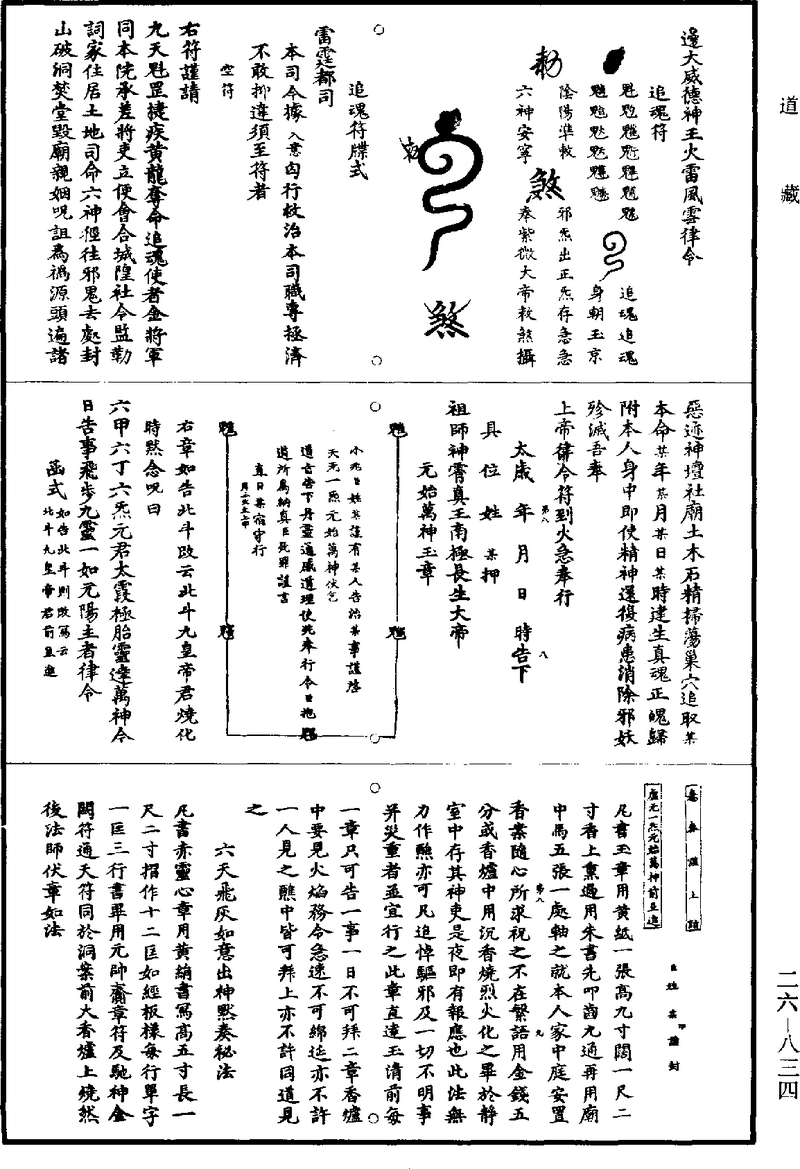 道藏
邊大威德神王火雷風雲律令
追魂符
追魂追魂
身朝玉京
陰陽準敕
邪炁出正炁存急急
六神安寧
奉紫微大帝敕煞攝
敕
煞
敕
煞
追魂符牒式
雷霆都司
本司今據入意白行救治本司職專拯濟
不敢抑違須至符者
空符
右符謹請
九天魁罡捷疾黃龍奪命追魂使者金將軍
同本院承差將吏立便會合城隍社令監勒
詞家住居土地司命六神徑往邪鬼去處封
山破洞焚堂毀廟親姻咒詛為禍源頭遍諸
惡迹神壇社廟土木石精掃蕩巢穴追取某
本命某年某月某日某時建生真魂正魄歸
附本人身中即使精神還復病患消除邪妖
殄滅吾奉
上帝律令符到火急奉行
第八
八
太歲 年 月 日 時告下
具位姓 某押
祖師神霄真王南極長生大帝
元始萬神玉章
小兆臣姓某謹有某人告治某事謹啓
天元一炁元始萬神伏乞
道言告下丹靈通感道理使兆奉行今日
道所屬納真臣死罪謹言
真日某宿守行
右章如告北斗改云北斗九皇帝君燒化
時默念咒曰
六甲六丁六炁元君太霞極胎靈達萬神今
日告事飛步九靈一如元陽主者律令
函式 如告北斗則改寫云
北斗九皇帝君前呈進
謹上
虛元一炁元始萬神前呈進
臣姓名謹封
凡書玉章用黃紙一張高九寸闊一尺二
寸香上熏過用朱書先叩齒九通再用廟
中馬五張一處軸之就本人家中庭安置
第八
九
香案隨心所求祝之不在繁語用金錢五
分或香爐中用沉香燒烈火化之畢於靜
室中存其神吏是夜即有報應也此法無
力作醮亦可凡追悼驅邪及一切不明事
并災重者並宜行之此章直達玉清前每
一章只可告一事一日不可拜二章香爐
中要見火焰務令急速不可綿延亦不許
一人見之醮中皆可拜上亦不許同道見
之
六天飛灰如意出神默奏秘法
凡書赤靈心章用黃絹書寫高五寸長一
尺二寸摺作十二匡如經板樣每行單字
一匡三行書畢用元帥齋章符及馳神金
闕符通天符同於洞案前大香爐上燒然
後法師伏章如法
二六—八三四